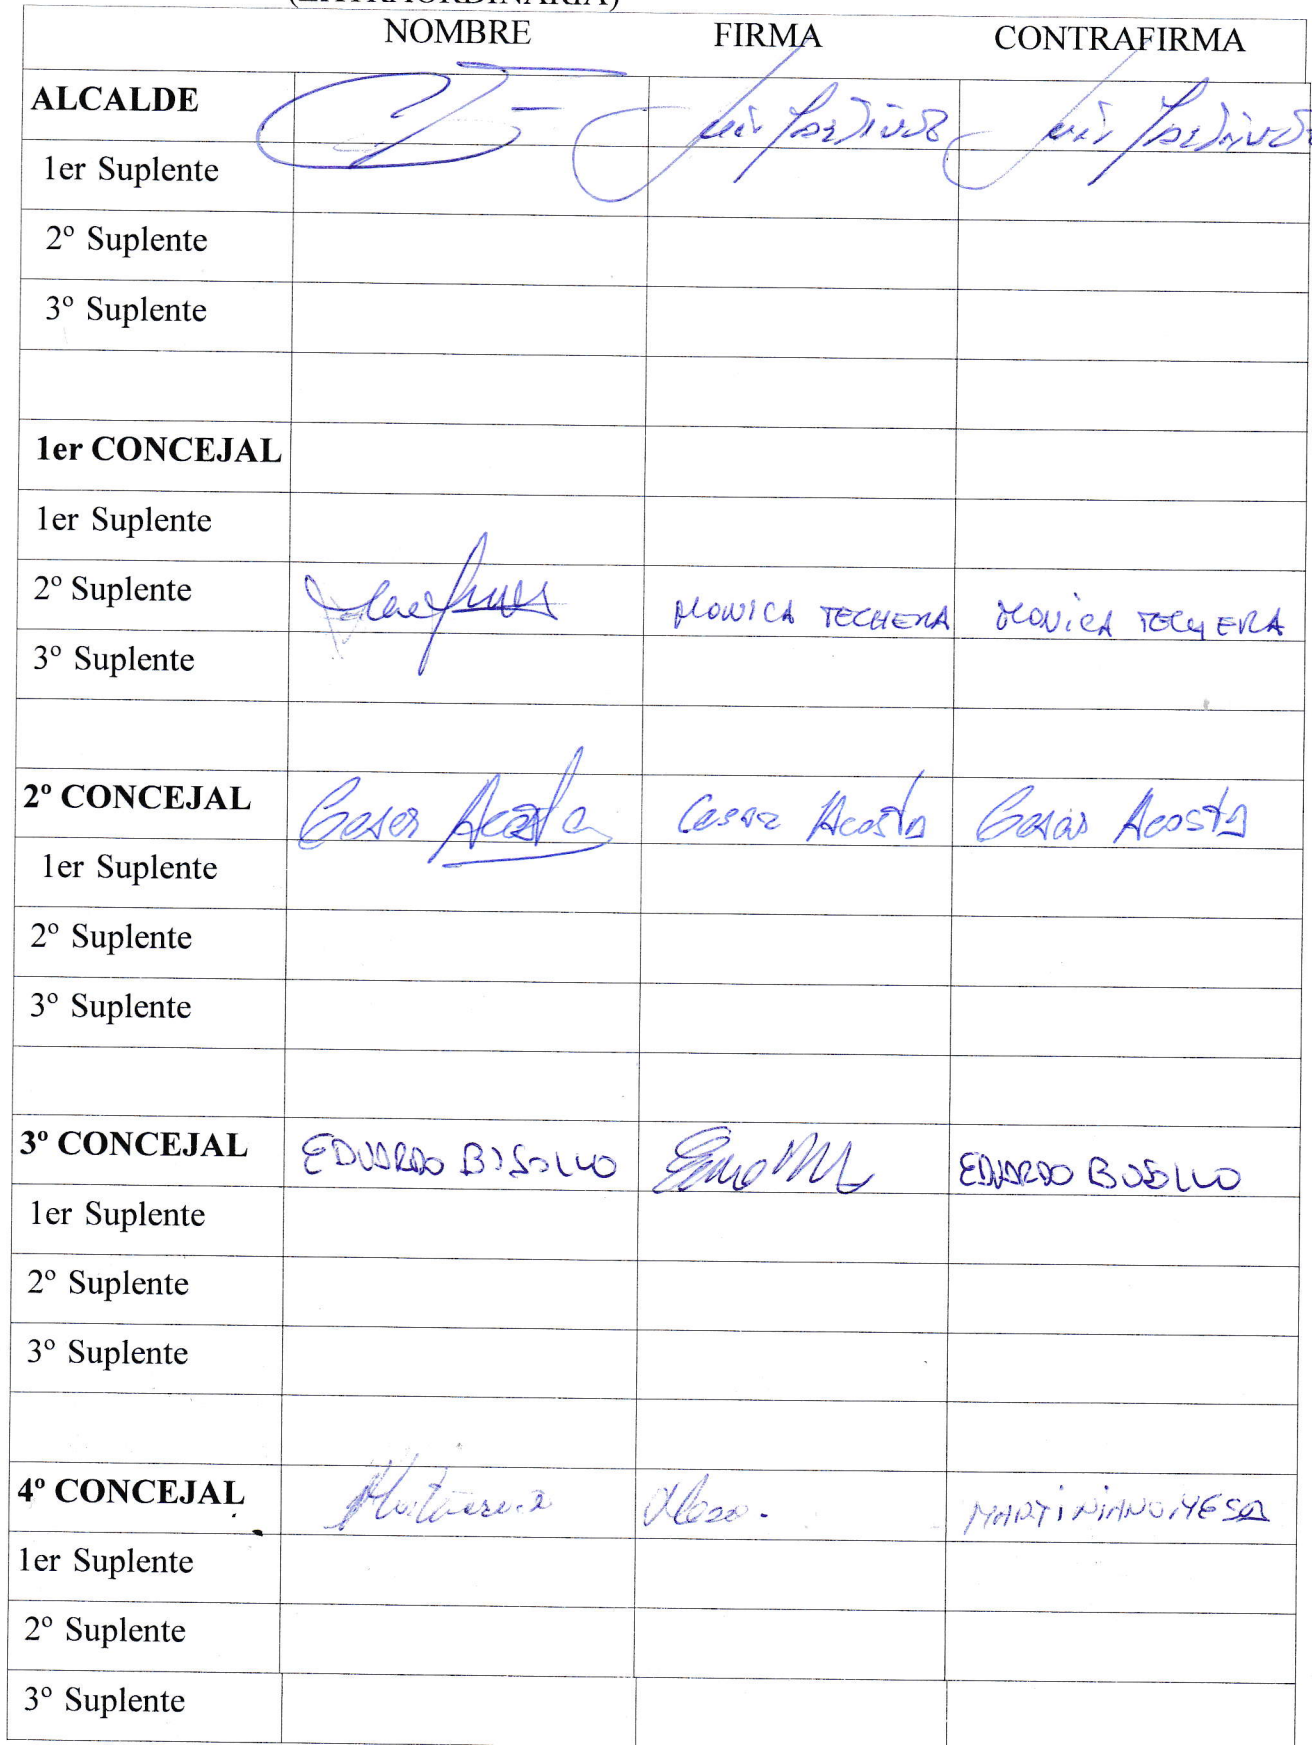 (EXTRAORDINARIA)
NOMBRE FIRMA CONTRAFIRMA
ALCALDE
1er Suplente
2º Suplente
3º Suplente
1er CONCEJAL
1er Suplente
2º Suplente MONICA TECHERA MONICA TECHERA
3º Suplente
2º CONCEJAL Cesar Acosta Cesar Acosta Cesar Acosta
1er Suplente
2º Suplente
3º Suplente
3º CONCEJAL EDUARDO EDUARDO
1er Suplente
2º Suplente
3º Suplente
4º CONCEJAL MARTINIANO MESA
1er Suplente
2º Suplente
3º Suplente